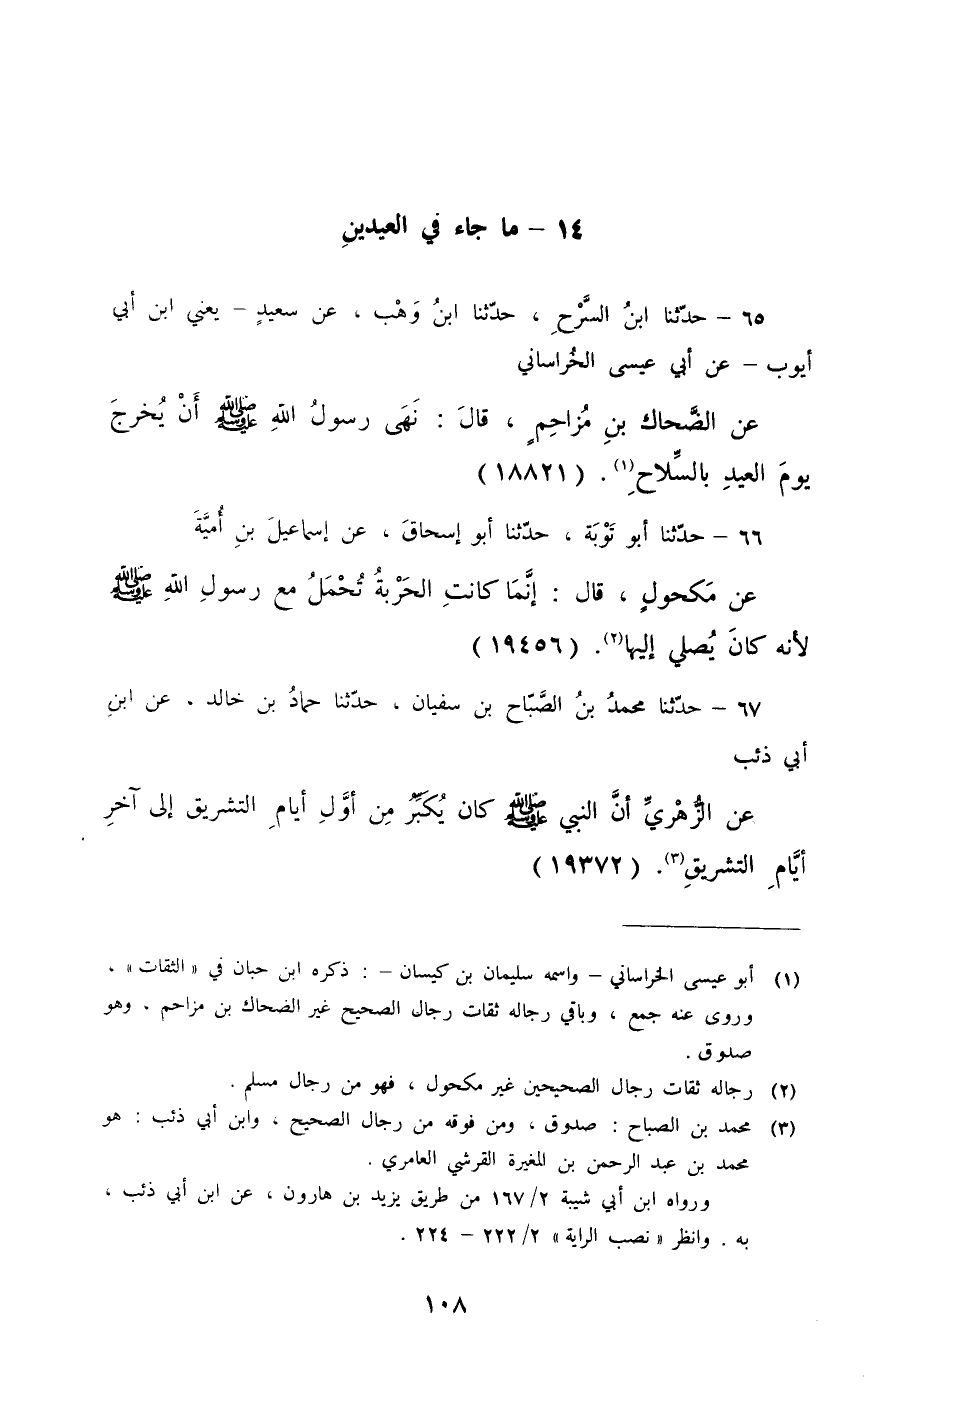 ١٤ – ما جاء في العيدينِ
٦٥ – حدّثنا ابنُ السَّرْحِ ، حدّثنا ابنُ وَهْب ، عن سعيدٍ – يعني ابن أبي
أيوب – عن أبي عيسى الخُراساني
عن الضَّحاك بنِ مُزاحِمٍ ، قالَ : نَهَى رسولُ اللهِ ﷺ أَنْ يُخرجَ
يومَ العيدِ بالسِّلاحِ(١) . (١٨٨٢١)
٦٦ – حدّثنا أبو تَوْبَة ، حدّثنا أبو إسحاقَ ، عن إسماعيلَ بنِ أُميَّةَ
عن مَكحولٍ ، قال : إنَّمَا كانتِ الحَرْبةُ تُحْمَلُ مع رسولِ اللهِ ﷺ
لأنه كانَ يُصلي إليها(٢). (١٩٤٥٦)
٦٧ – حدّثنا محمدُ بنُ الصَّبّاح بن سفيان ، حدّثنا حمادُ بن خالد . عن ابنِ
أبي ذئب
عن الزُّهْريِّ أنَّ النبي ﷺ كان يُكَبِّرُ مِن أوَّلِ أيامِ التشريق إلى آخرِ
أيَّامِ التشريقِ(٣). (١٩٣٧٢)
(١) أبو عيسى الخراساني – واسمه سليمان بن كيسان – : ذكره ابن حبان في «الثقات» ،
وروى عنه جمع ، وباقي رجاله ثقات رجال الصحيح غير الضحاك بن مزاحم . وهو
صدوق .
(٢) رجاله ثقات رجال الصحيحين غير مكحول ، فهو من رجال مسلم .
(٣) محمد بن الصباح : صدوق ، ومن فوقه من رجال الصحيح ، وابن أبي ذئب : هو
محمد بن عبد الرحمن بن المغيرة القرشي العامري .
ورواه ابن أبي شيبة ١٦٧/٢ من طريق يزيد بن هارون ، عن ابن أبي ذئب ،
به . وانظر «نصب الراية» ٢٢٢/٢ – ٢٢٤ .
١٠٨